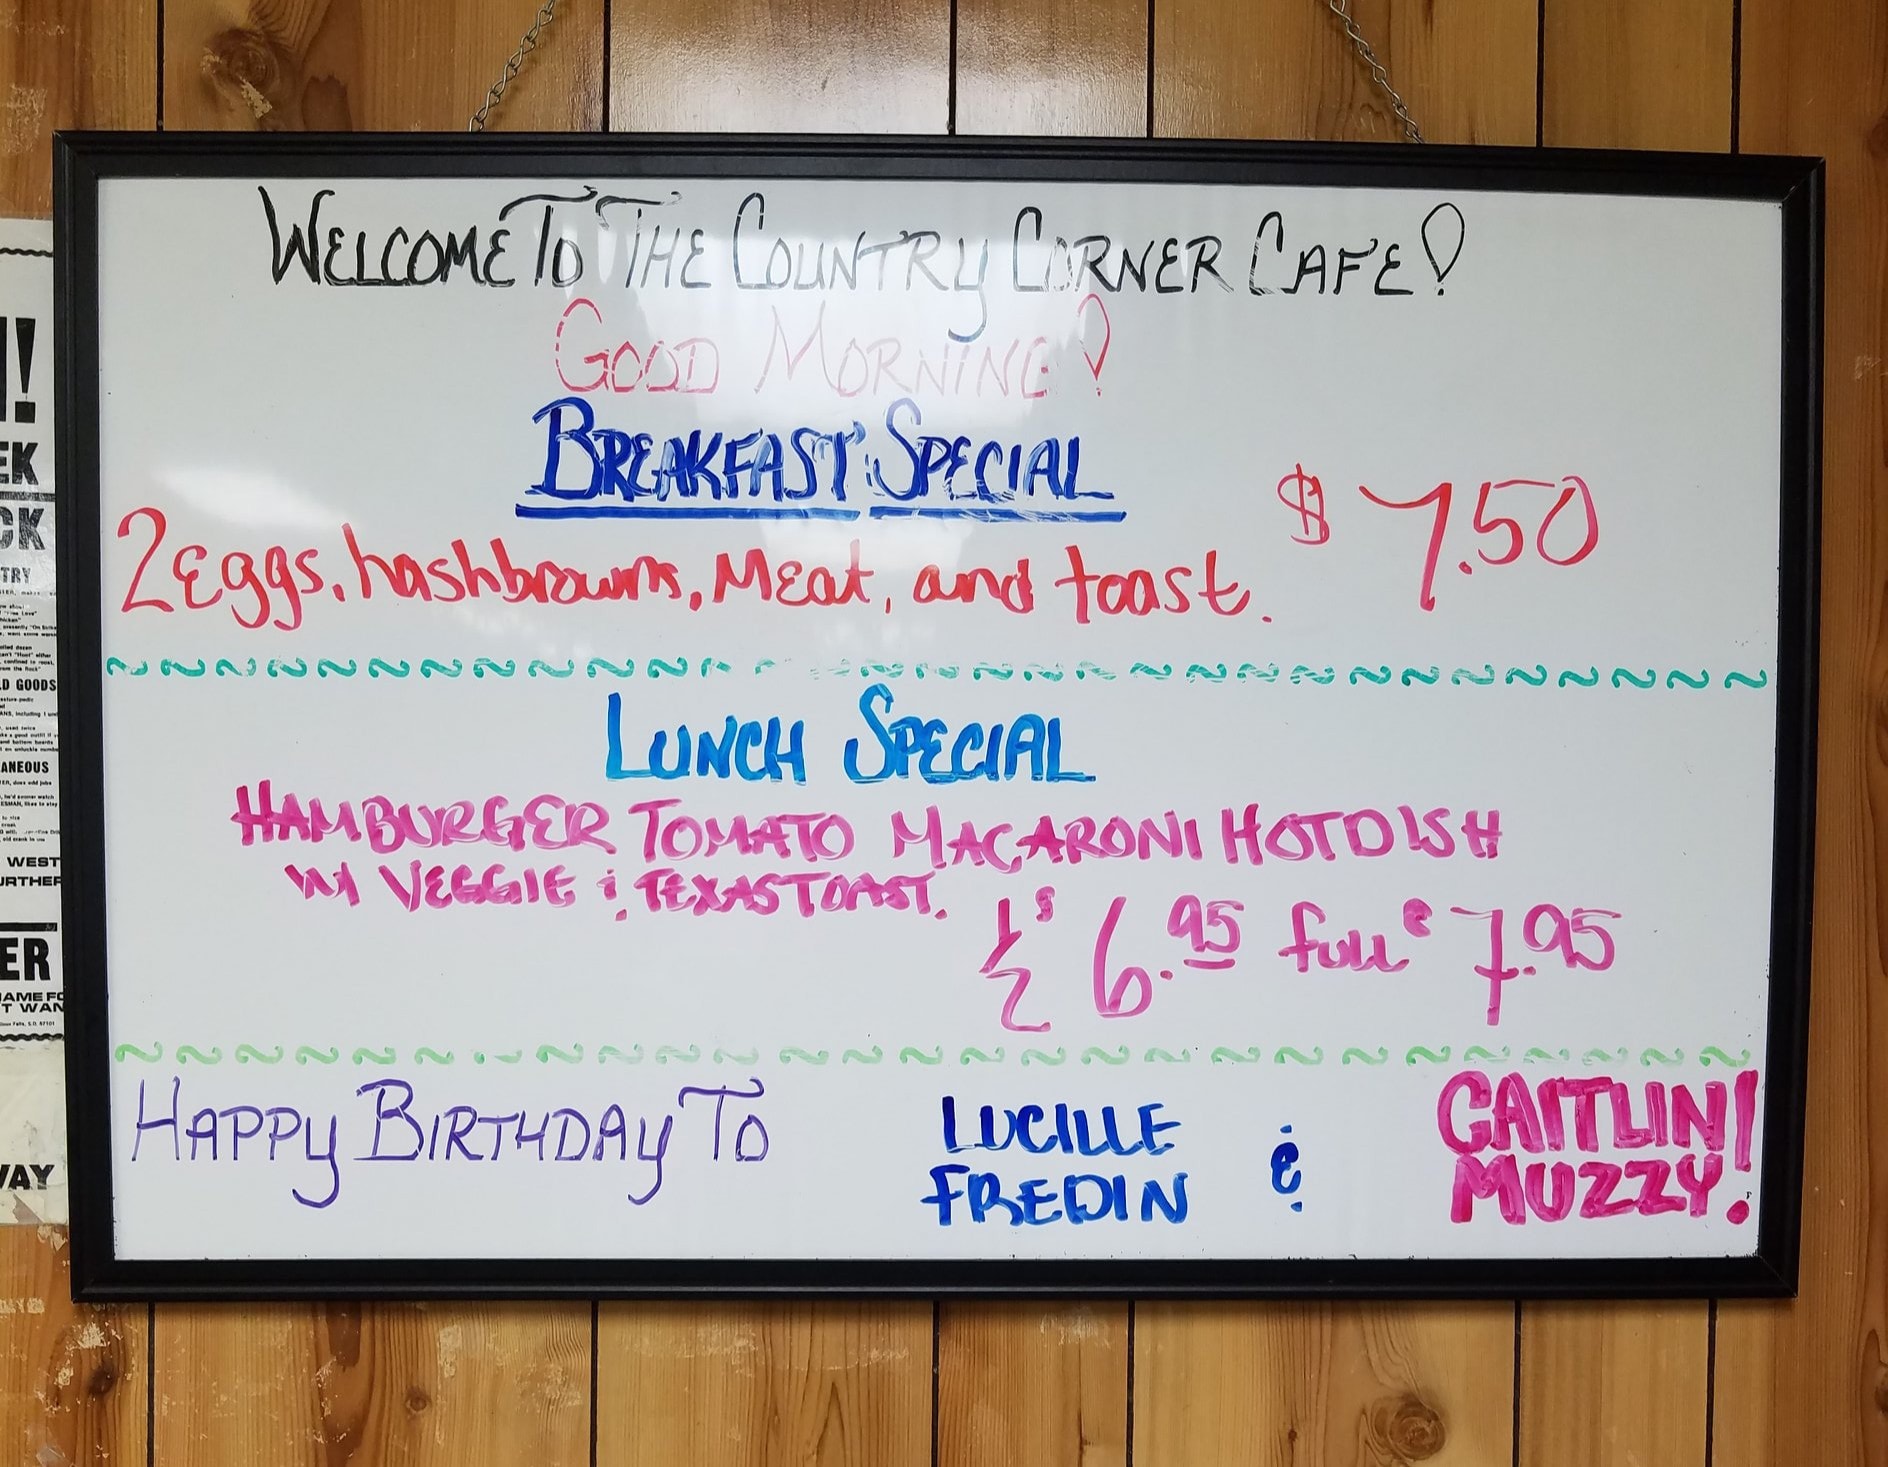 WELCOME TO THE COUNTRY CORNER CAFE!
GOOD MORNING!
BREAKFAST SPECIAL
2 eggs, hashbrowns, Meat, and toast.
$7.50
LUNCH SPECIAL
HAMBURGER TOMATO MACARONI HOTDISH
W/ VEGGIE & TEXAS TOAST.
½'s 6.95 full @ 7.95
HAPPY BIRTHDAY TO
LUCILLE
FREDIN
&
CAITLIN!
MUZZY!
!
EK
CK
TRY
D GOODS
ANEOUS
WEST
URTHER
ER
AME FO
T WAN
WAY